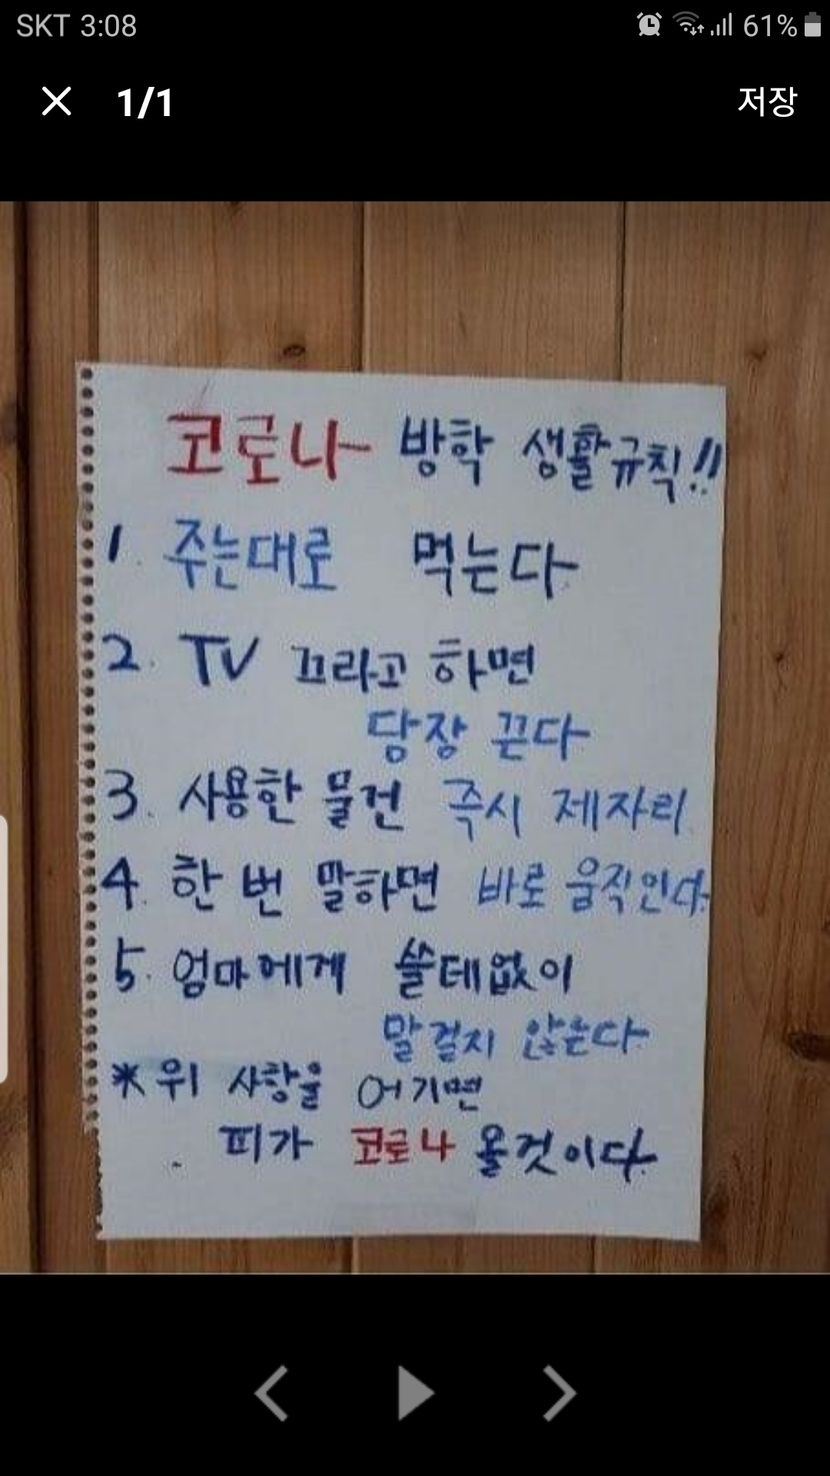 SKT 3:08 61%
1/1 저장
코로나 방학 생활규칙!!
1. 주는대로 먹는다
2. TV 끄라고 하면
당장 끈다
3. 사용한 물건 즉시 제자리
4. 한 번 말하면 바로 움직인다.
5. 엄마에게 쓸데없이
말걸지 않는다
* 위 사항을 어기면
피가 코로나 올것이다.